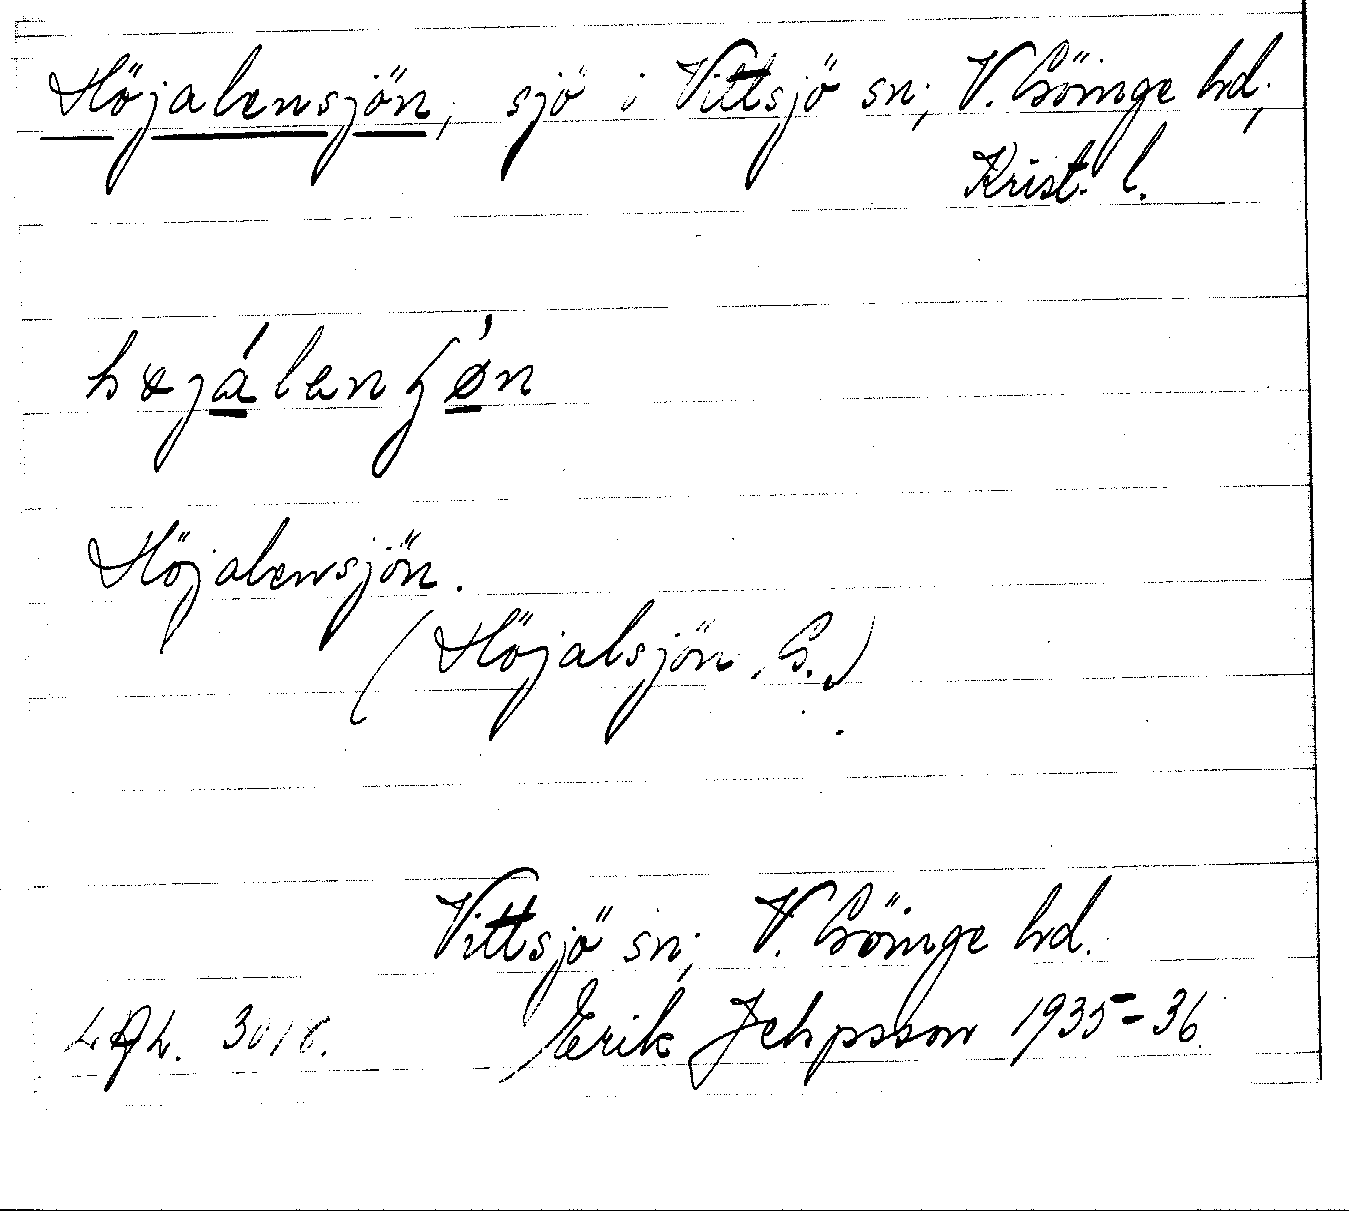 Höjalensjön, sjö i Vittsjö sn, V. Göinge hd,
Krist. l.
Höjalensjön.
(Höjalsjön, G.)
Vittsjö sn, V. Göinge hd.
Erik Jehpsson 1935-36.